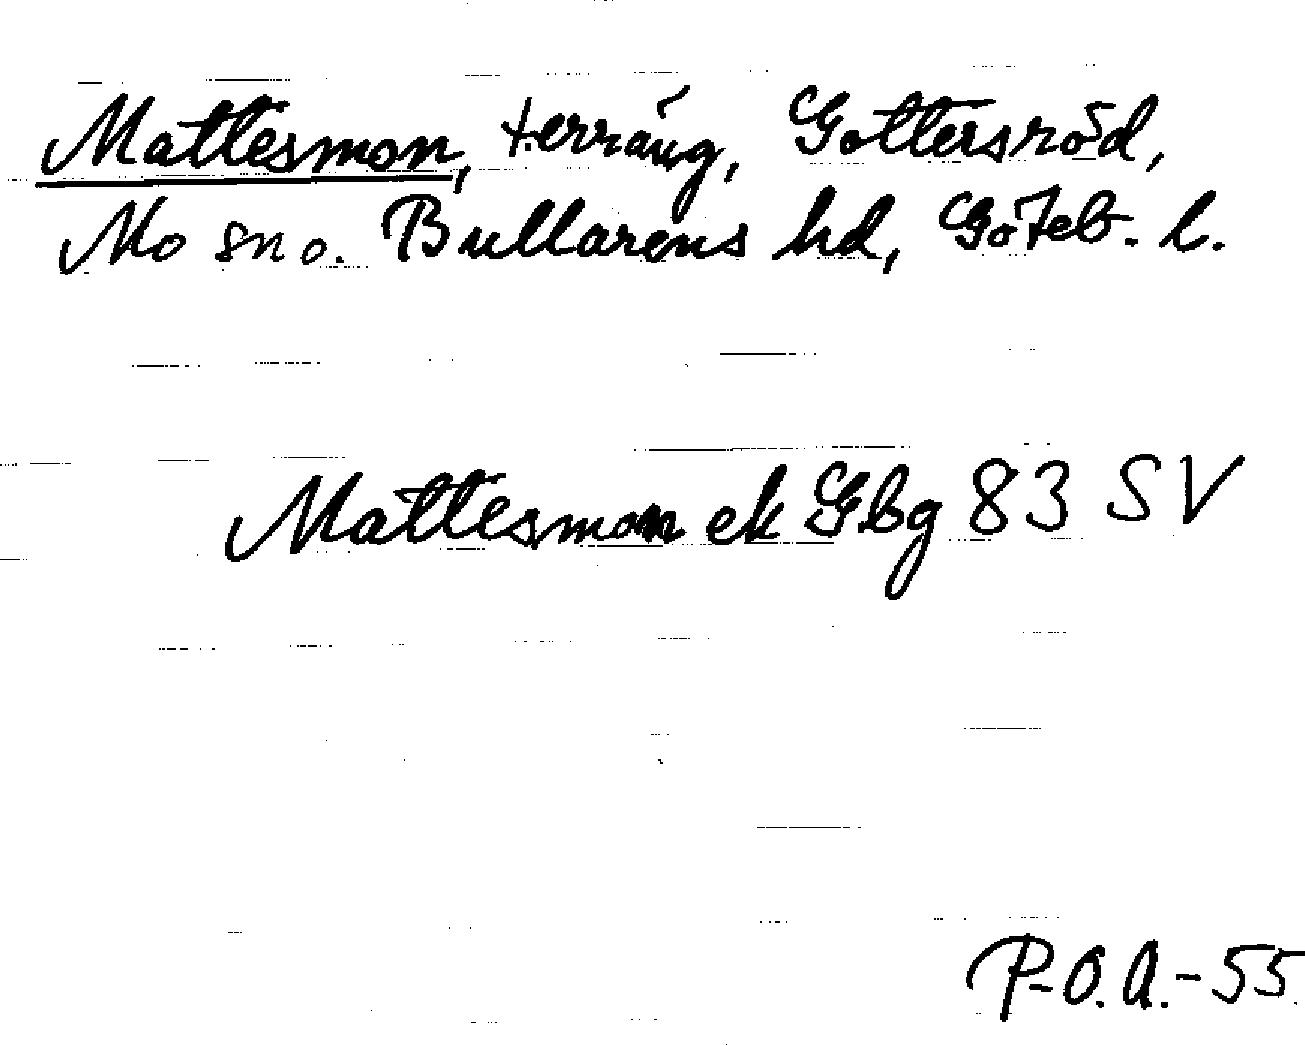 Mattesmon, terräng, Gottersröd,
Mo sn o. Bullarens hd, Göteb. l.
Mattesmon ek Gbg 83 SV
P-O.A.-55.